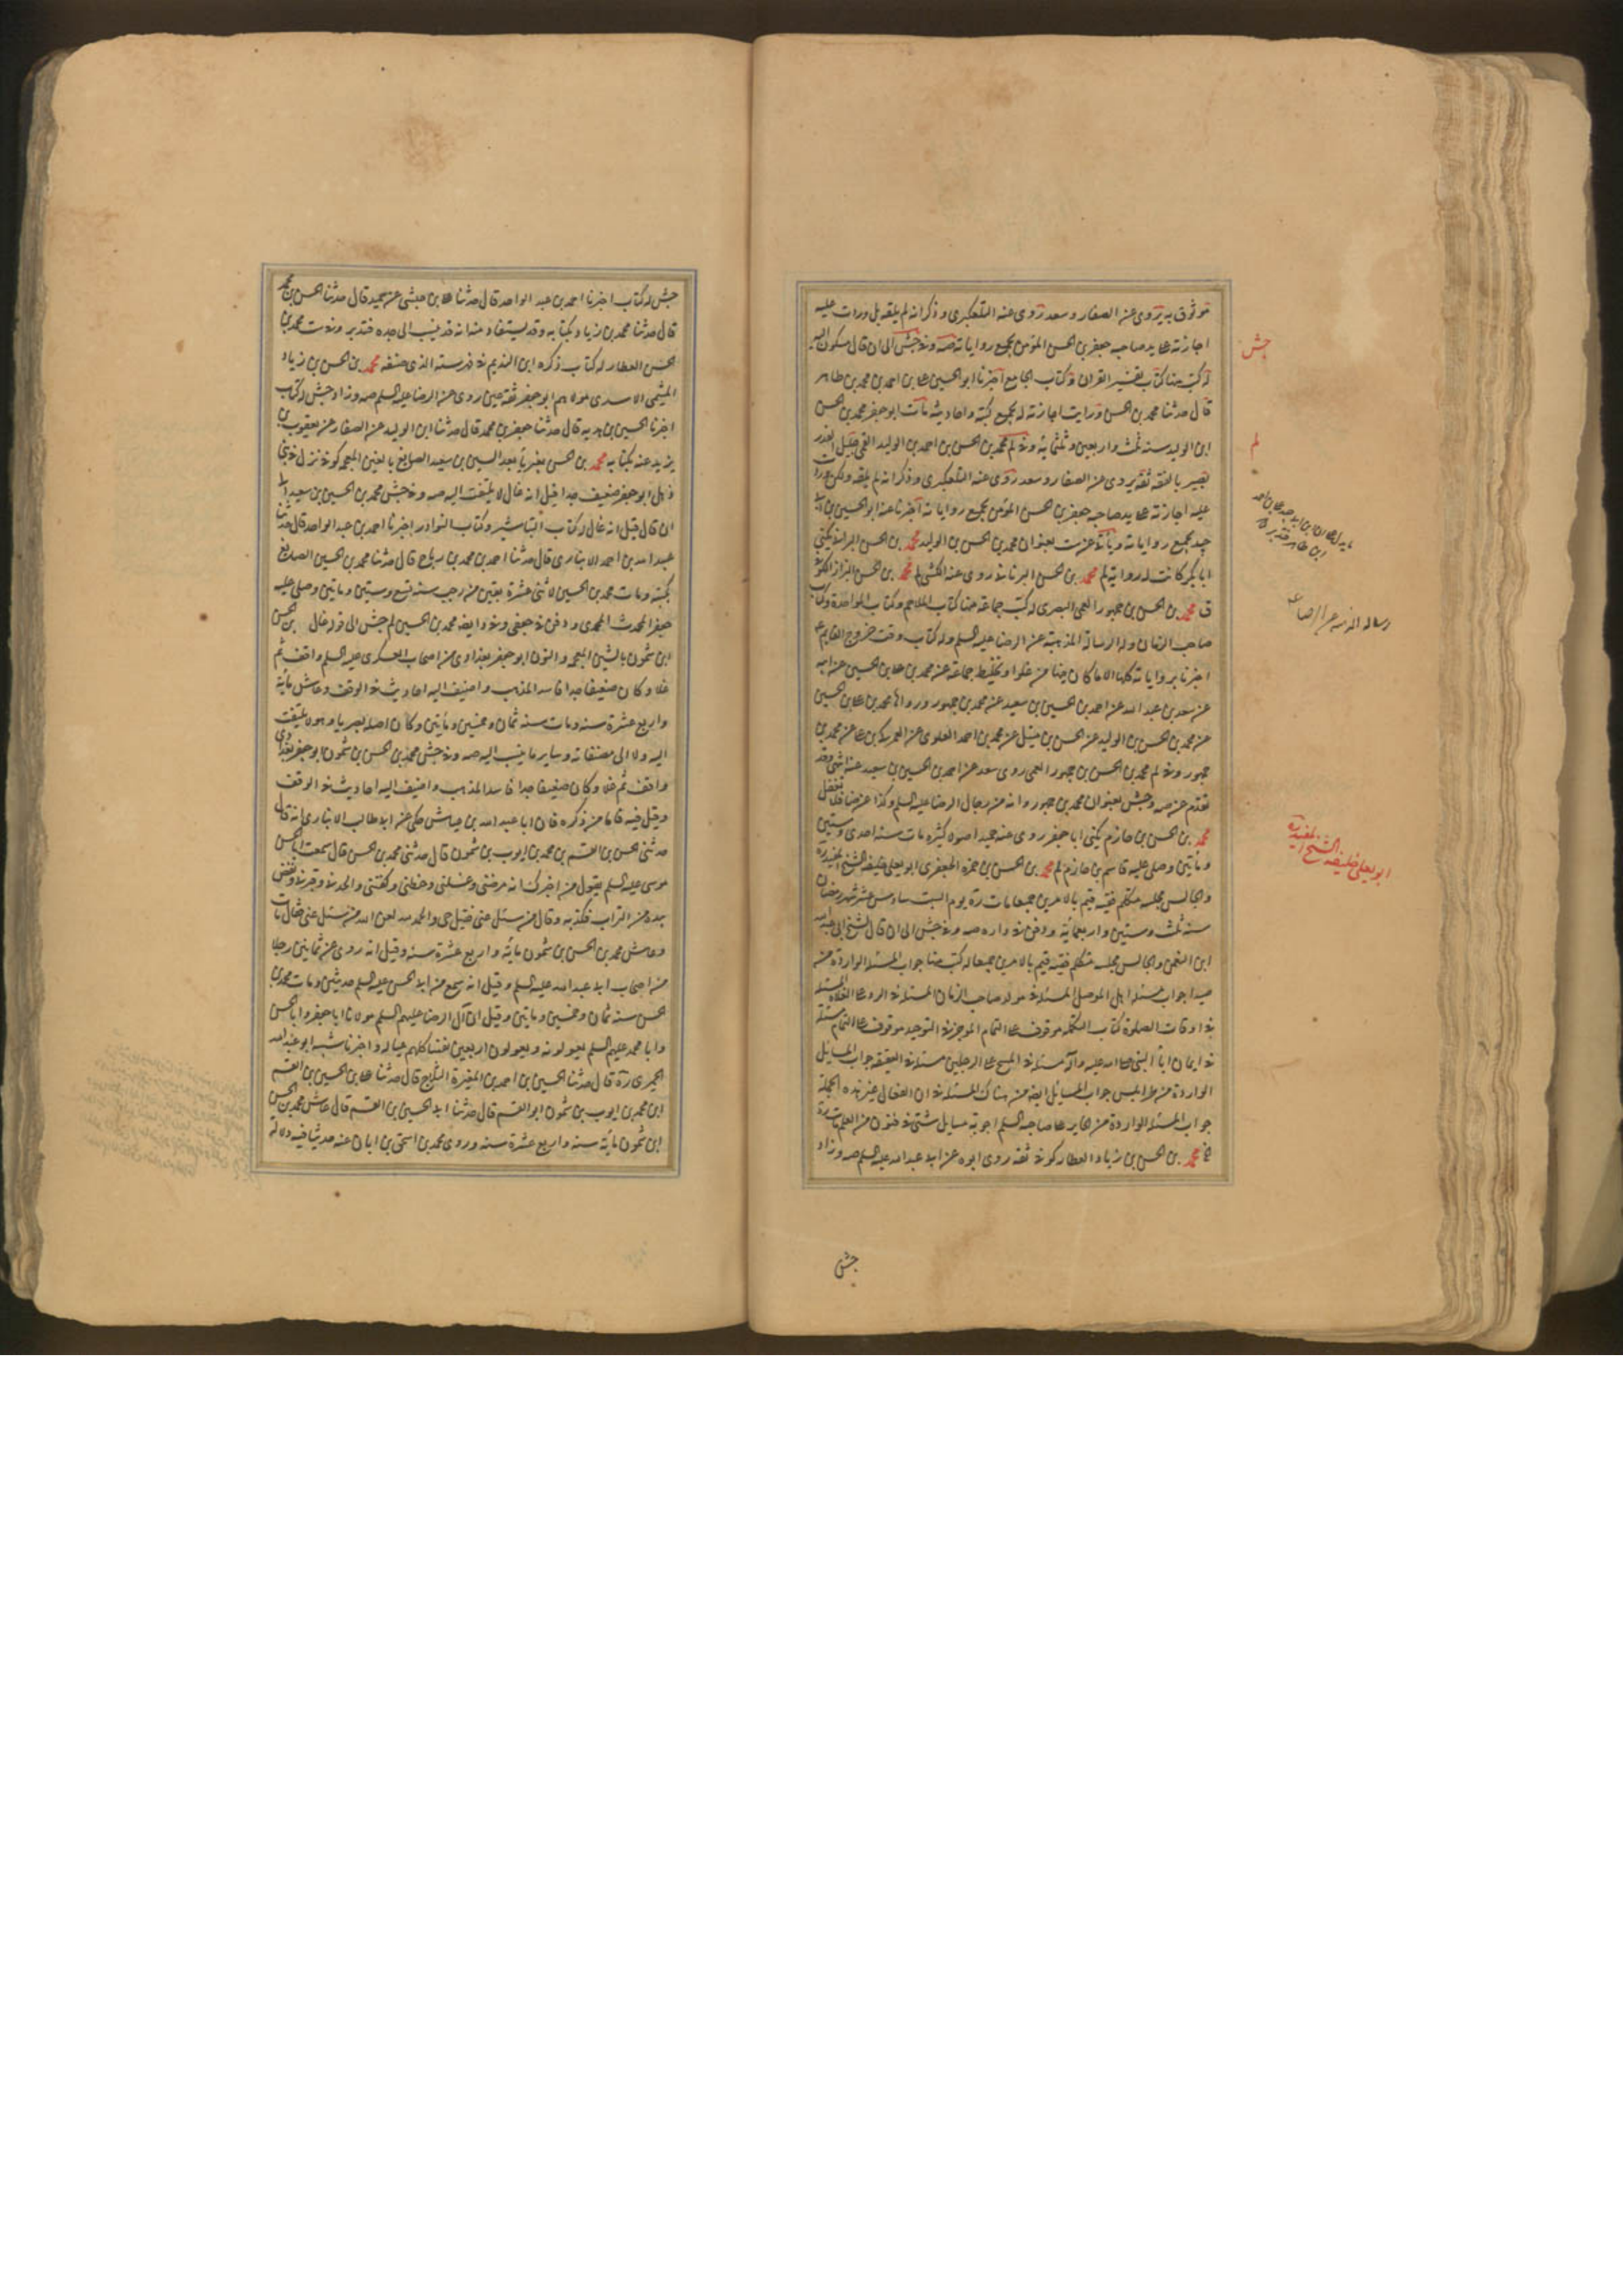 موثوق به يروى عن الصفار وسعد روى عنه التلعكبرى وذكر انه لم يلقه بل وردت عليه
اجازته على يد صاحبه جعفر بن الحسن المؤمن بجميع رواياته صه وفى جش الى ان قال مسكون اليه
له كتب منها كتاب تفسير القران وكتاب الجامع اخبرنا ابو الحسين على بن احمد بن محمد بن طاهر
قال حدثنا محمد بن الحسن ورايت اجازته له بجميع كتبه واحاديثه مات ابو جعفر محمد بن الحسن
ابن الوليد سنة ثلث واربعين وثلثمائة وفى لم محمد بن الحسن بن احمد بن الوليد القمى جليل القدر
بصير بالفقه ثقة يروى عن الصفار وسعد روى عنه التلعكبرى وذكر انه لم يلقه ولكن وردت
عليه اجازته على يد صاحبه جعفر بن الحسن المؤمن بجميع رواياته اخبرنا عنه ابو الحسين بن ابى
جيد بجميع رواياته وياتى عن ست بعنوان محمد بن الحسن بن الوليد محمد بن الحسن البرانى يكنى
ابا بكر كانت له رواية لم محمد بن الحسن البرنانى روى عنه الكشى لم محمد بن الحسن البزاز الكوفى
ق محمد بن الحسن بن جمهور العمى البصرى له كتب جماعة منها كتاب الملاحم وكتاب الواحدة وكتاب
صاحب الزمان وله الرسالة المذهبة عن الرضا عليه السلم وله كتاب وقت خروج القايم ع
اخبرنا برواياته كلها الا ما كان فيها من غلو او تخليط جماعة عن محمد بن على بن الحسين عن ابيه
عن سعد بن عبد الله عن احمد بن الحسين بن سعيد عن محمد بن جمهور ورواها محمد بن على بن الحسين
عن محمد بن الحسن بن الوليد عن الحسن بن متيل عن محمد بن احمد العلوى عن العمركى بن على عن محمد بن
جمهور وفى لم محمد بن الحسن بن جمهور العمى روى سعد عن احمد بن الحسين بن سعيد عنه انتهى وقد
تقدم عن صه وجش بعنوان محمد بن جمهور وانه من رجال الرضا عليه السلم وكذا عن ضا فلا تغفل
محمد بن الحسن بن حازم يكنى ابا جعفر روى عنه حميد اصولا كثيرة مات سنة احدى وستين
وماتين وصلى عليه قاسم بن حازم لم محمد بن الحسن بن حمزه الجعفرى ابو يعلى خليفة الشيخ المفيد ره
والجالس مجلسه متكلم فقيه قيم بالامرين جميعا مات ره يوم السبت سادس عشر شهر رمضان
سنة ثلث وستين واربعمائة ودفن فى داره صه وفى جش الى ان قال الشيخ ابى عبد الله
ابن النعمن والجالس مجلسه متكلم فقيه قيم بالامرين جميعا له كتب منها جواب المسئلة الواردة من
صيدا جواب مسئلة اهل الموصل المسئلة فى مولد صاحب الزمان المسئلة فى الرد على الغلاة المسئلة
فى اوقات الصلوة كتاب التكملة موقوف على التمام الموجز فى التوحيد موقوف على التمام مسئلة
فى ايمان اباء النبى صلى الله عليه وآله مسئلة فى المسح على الرجلين مسئلة فى العقيقة جواب المسايل
الواردة من طرابلس جواب المسايل ايضا من هناك المسئلة فى ان الفعال غير هذه الجملة
جواب المسئلة الواردة من الحاير على صاحبه السلم اجوبة مسايل شتى فى فنون من العلم مات ره
محمد بن الحسن بن زياد العطار كوفى ثقة روى ابوه عن ابى عبد الله عليه السلم صه وزاد
جش
جش
لم
رسالة المذهبة عن الرضا ع
ابو يعلى خليفة الشيخ المفيد ره
جش له كتاب اخبرنا احمد بن عبد الواحد قال حدثنا على بن حبشى عن حميد قال حدثنا الحسن بن محمد
قال حدثنا محمد بن زياد بكتابه وقد يستفاد منه انه قد ينسب الى جده فتدبر وفى ست محمد بن
الحسن العطار له كتاب ذكره ابن النديم فى فهرسته الذى صنفه محمد بن الحسن بن زياد
الميثمى الاسدى مولاهم ابو جعفر ثقة عين روى عن الرضا عليه السلم صه وزاد جش له كتاب
اخبرنا الحسين بن هدية قال حدثنا جعفر بن محمد قال حدثنا ابن الوليد عن الصفار عن يعقوب بن
يزيد عنه بكتابه محمد بن الحسن بغير ياء بعد السين بن سعيد الصايغ بالغين المعجمه كوفى نزل فى بنى
ذهل ابو جعفر ضعيف جدا قيل انه غال لا يلتفت اليه صه وفى جش محمد بن الحسين بن سعيد الى
ان قال قيل انه غال له كتاب التباشير وكتاب النوادر اخبرنا احمد بن عبد الواحد قال حدثنا
عبيد الله بن احمد الانبارى قال حدثنا احمد بن محمد بن رباح قال حدثنا محمد بن الحسين الصايغ
بكتبه ومات محمد بن الحسين لاثنى عشرة بقين من رجب سنة تسع وستين وماتين وصلى عليه
جعفر المحدث المحمدى ودفن فى جعفى وفى د ايضا محمد بن الحسين لم جش الى قوله غال بن الحسن
ابن شمون بالشين المعجمه والنون ابو جعفر بغدادى من اصحاب العسكرى عليه السلم واقف ثم
غلا وكان ضعيفا جدا فاسد المذهب واضيف اليه احاديث فى الوقف وعاش مائة
واربع عشرة سنه ومات سنه ثمان وخمسين وماتين وكان اصله بصريا وهو لا يلتفت
اليه ولا الى مصنفاته وساير ما ينسب اليه صه وفى جش محمد بن الحسن بن شمون ابو جعفر بغدادى
واقف ثم غلا وكان ضعيفا جدا فاسد المذهب واضيف اليه احاديث فى الوقف
وقيل فيه فاما من ذكره فان ابا عبد الله بن عياش حكى عن ابى طالب الانبارى انه قال
حدثنى الحسين بن القسم بن محمد بن ايوب بن شمون قال حدثنى محمد بن الحسن قال سمعت ابا الحسن
موسى عليه السلم يقول من اخبرك انه مرضنى وغسلنى وحنطنى وكفننى والحدنى وقبرنى ونفض
يده من التراب فكذبه وقال من سئل عنى فقيل حى والحمد لله لعن الله من سئل عنى فقال مات
وعاش محمد بن الحسن بن شمون مائة واربع عشرة سنه وقيل انه روى عن ثمانين رجلا
من اصحاب ابى عبد الله عليه السلم وقيل انه سمع من ابى الحسن عليه السلم حديثين ومات محمد بن
الحسن سنه ثمان وخمسين وماتين وقيل ان آل الرضا عليهم السلم مولانا ابا جعفر وابا الحسن
وابا محمد عليهم السلم يعولونه ويعولون اربعين نفسا كلهم عياله واخبرنا بنسبه ابو عبد الله
الحميرى ره قال حدثنا الحسين بن احمد بن المغيرة الثلاج قال حدثنا على بن الحسين بن القسم
ابن محمد بن ايوب بن شمون ابو القسم قال حدثنا ابى الحسين بن القسم قال عاش محمد بن الحسن
ابن شمون مائة سنه واربع عشرة سنه وروى محمد بن اسحق بن ابان عنه حديثا فيه دلالة